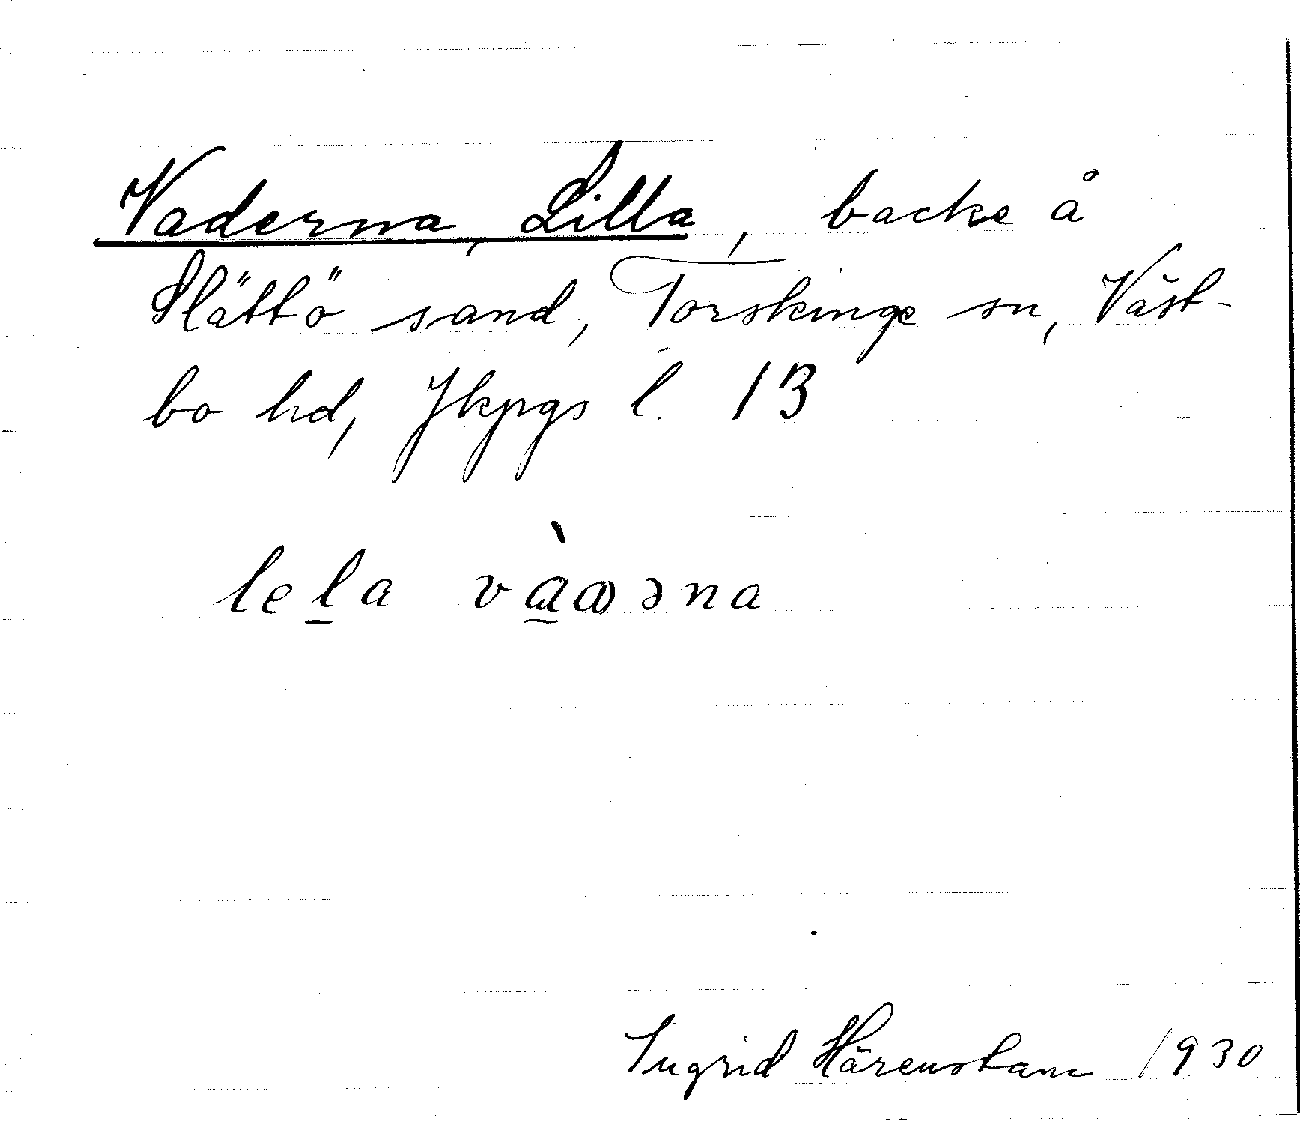 Vaderna, Lilla, backe å
Slättö sand, Torskinge sn, Väst-
bo hd, Jkpgs l. 13
lela
Ingrid Härenstam 1930